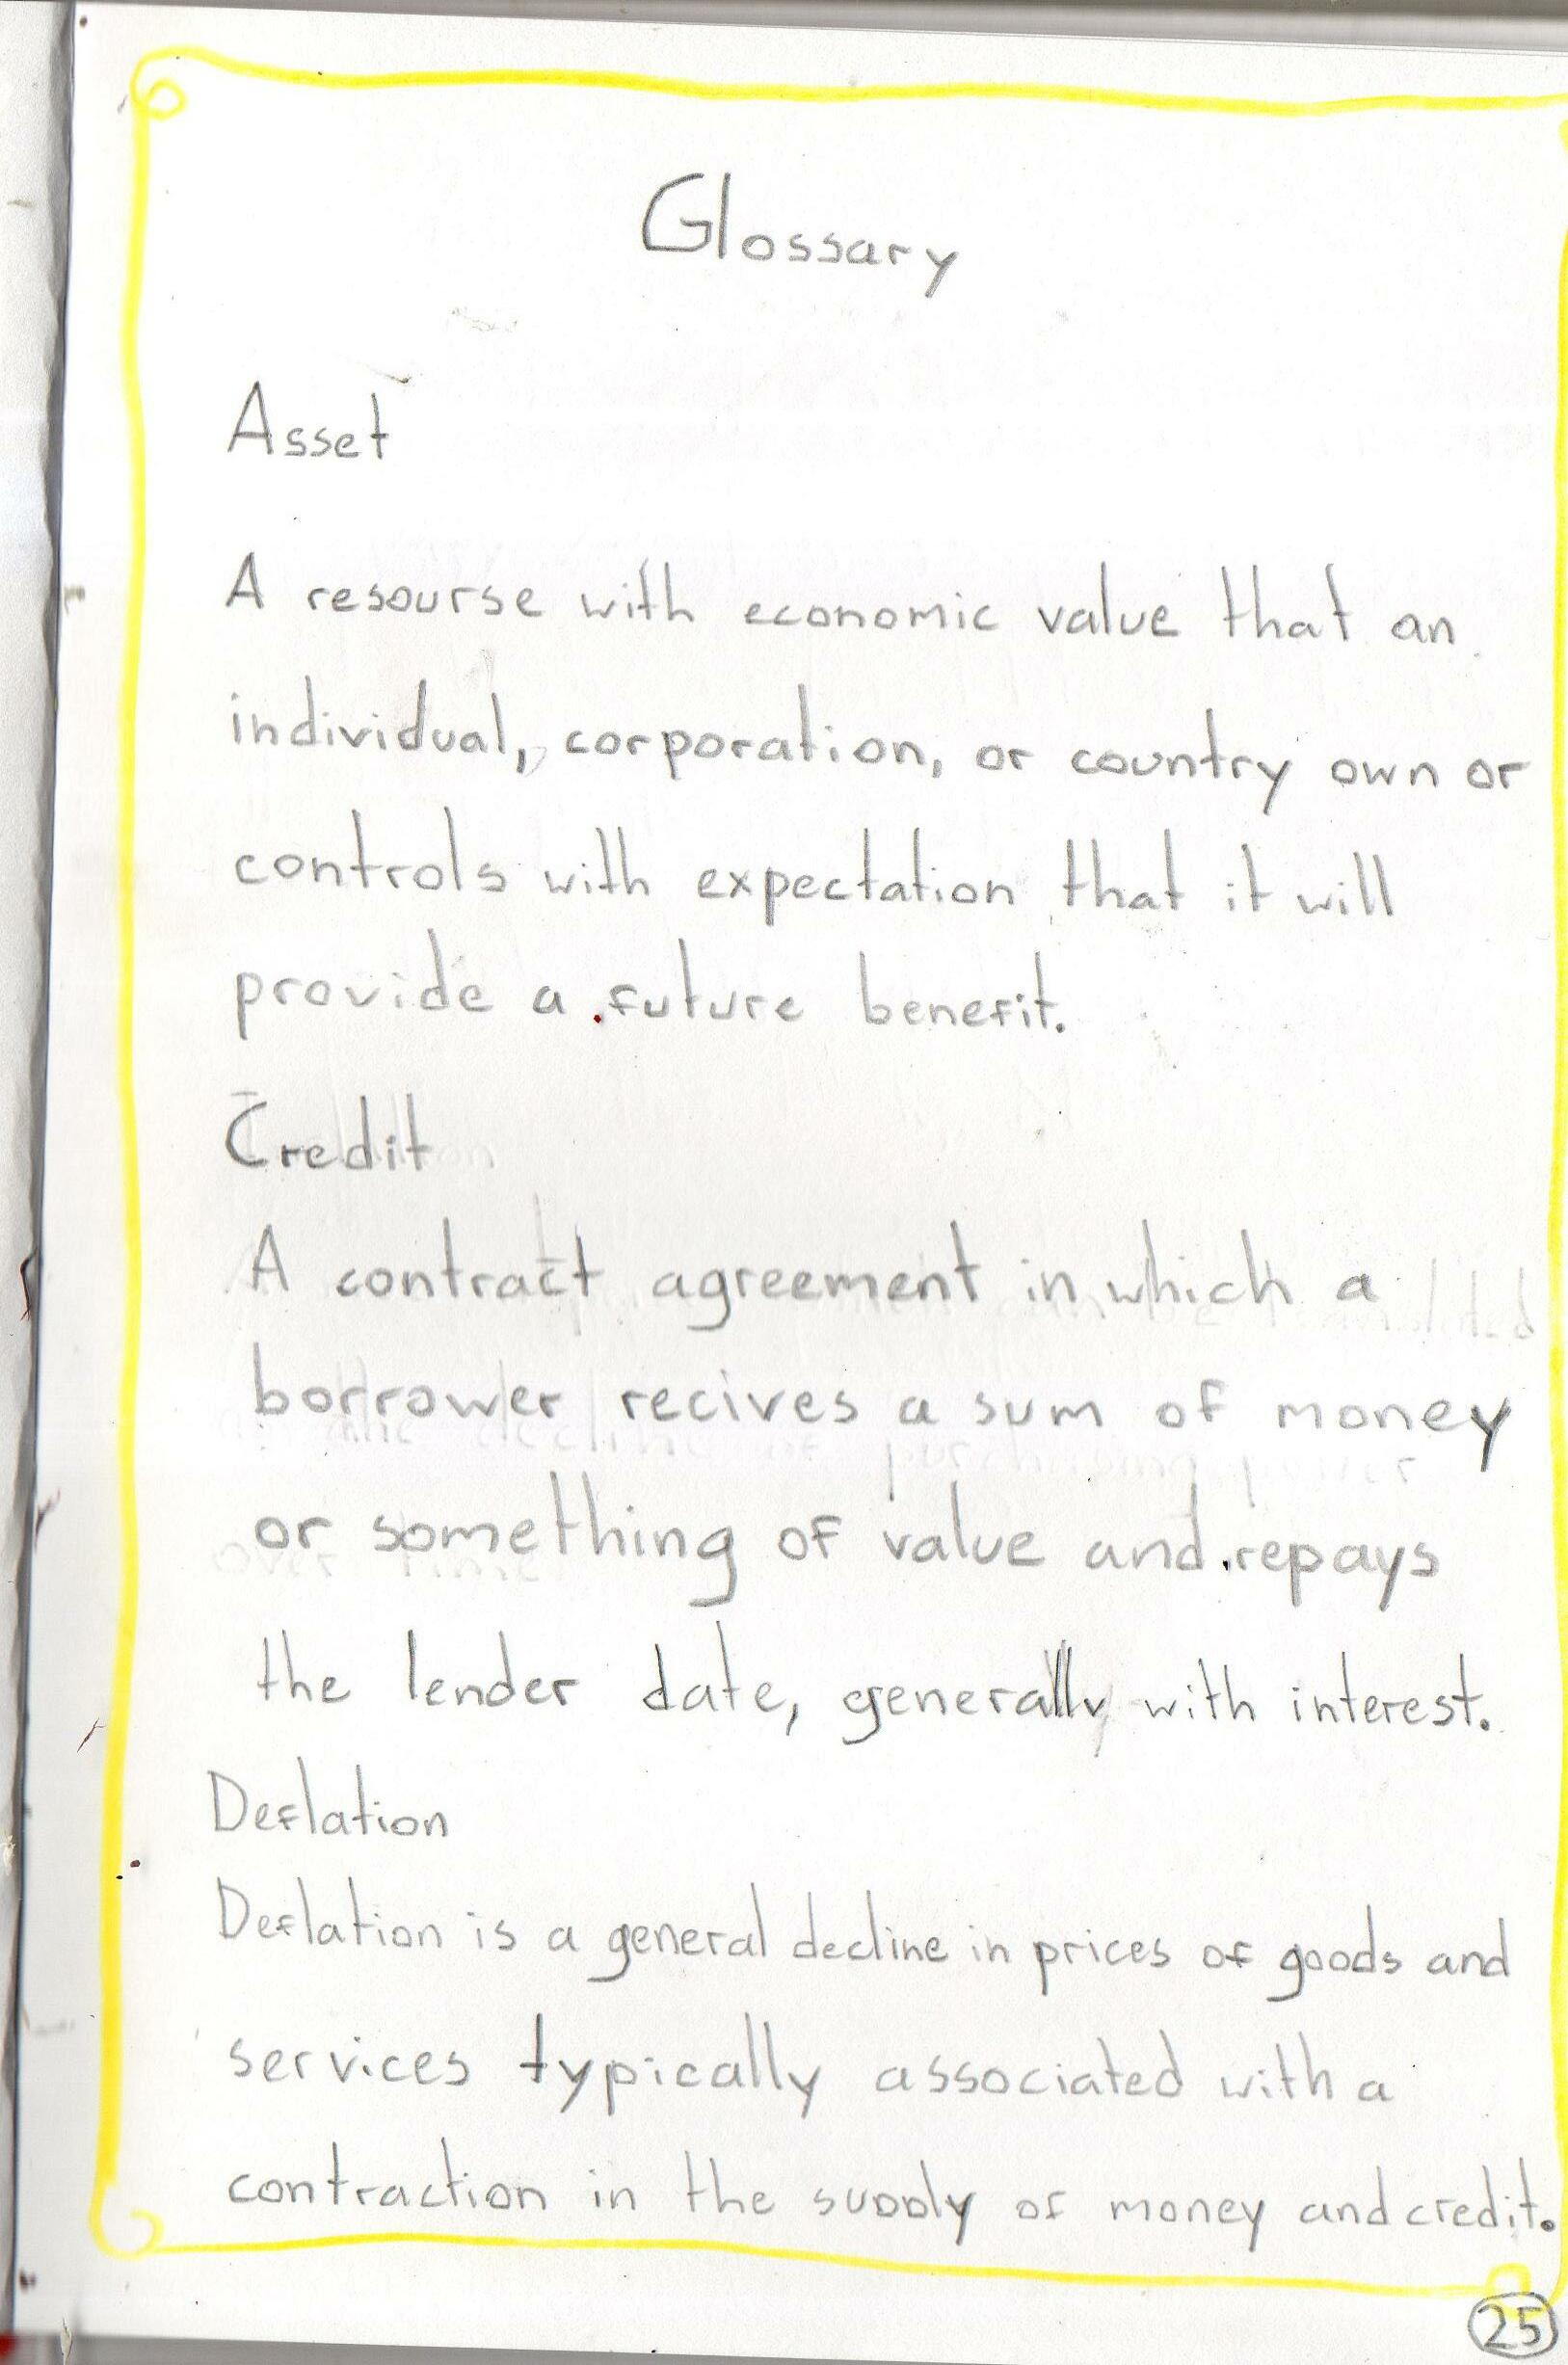 Glossary
Asset
A resourse with economic value that an
individual, corporation, or country own or
controls with expectation that it will
provide a future benefit.
Credit
A contract agreement in which a
borrower recives a sum of money
or something of value and repays
the lender date, generally with interest.
Deflation
Deflation is a general decline in prices of goods and
services typically associated with a
contraction in the supply of money and credit.
25